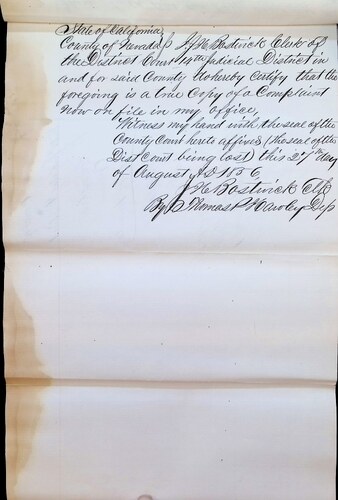 State of California
County of Nevada } I J H Bostwick Clerk of
the District Court 14th Judicial District in
and for said County do hereby certify that the
foregoing is a true Copy of a Complaint
now on file in my office,
Witness my hand with the seal of the
County Court hereto affixed (the seal of the
Dist Court being lost) this 27th day
of August AD 1856
J H Bostwick Clk
By Thomas P Hawley Dep